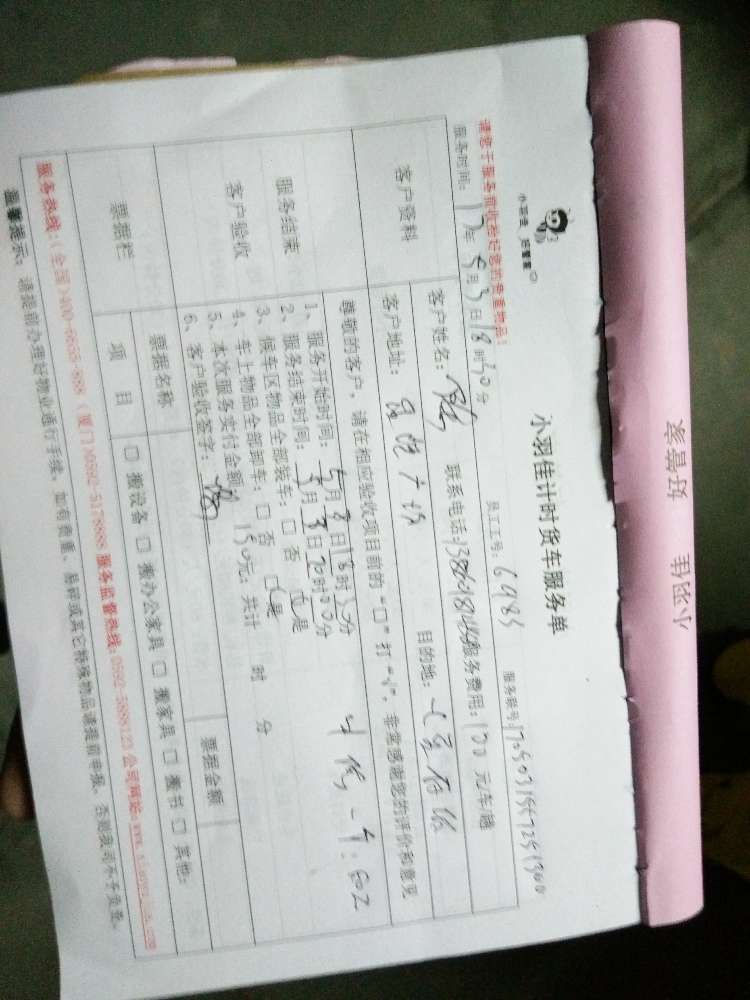 小羽佳 好管家
小羽佳 好管家
小羽佳计时货车服务单
请您于服务前收拾好您的贵重物品！
员工工号：6485
服务时间：17年5月3日18时30分
客户资料
客户姓名：
联系电话：
服务费用：170元/车/趟
客户地址：
广场
目的地：
尊敬的客户，请在相应验收项目前的“□”打“√”，非常感谢您的评价和意见
服务结束
客户验收
1、服务开始时间：5月3日18时30分
2、服务结束时间：5月3日20时00分
3、候车区物品全部装车：□ 否 □是
4、车上物品全部卸车：□ 否 □是
5、本次服务实付金额 150元；共计 时 分
6、客户验收签字：
票据栏
票据名称
票据金额
项 目
□ 搬设备 □ 搬办公家具 □ 搬家具 □ 搬书 □ 其他:
服务热线：(全国)400-6655-888 (厦门)0592-5178888 服务监督热线：0592-5888123 公司网站：www.xiaoyujia.com
温馨提示：请提前办理好物业通行手续，如有贵重、易碎或其它特殊物品请提前申报，否则我司不予负责。